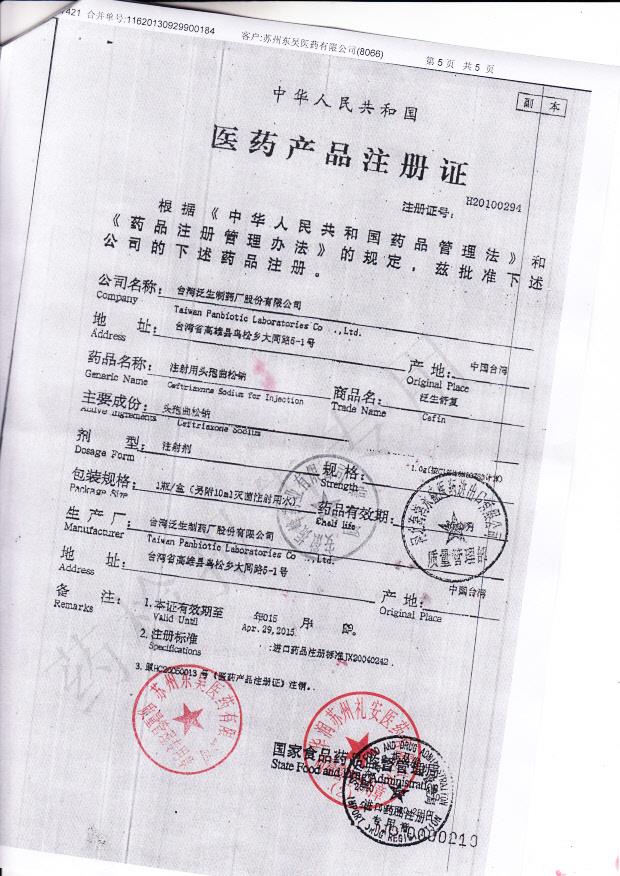 7421 合并单号:11620130929900184
客户:苏州东吴医药有限公司(8066)
第 5 页 共 5 页
副 本
中华人民共和国
医药产品注册证
注册证号: H20100294
根据《中华人民共和国药品管理法》和
《药品注册管理办法》的规定，兹批准下述
公司的下述药品注册。
公司名称: 台湾泛生制药厂股份有限公司
Company Taiwan Panbiotic Laboratories Co .,Ltd.
地 址: 台湾省高雄县鸟松乡大同路5-1号
Address
产 地: 中国台湾
Original Place
药品名称: 注射用头孢曲松钠
Generic Name Ceftriaxone Sodium for Injection
商品名: 泛生舒复
Trade Name Cefin
主要成份: 头孢曲松钠
Active Ingredients Ceftriaxone Sodium
剂 型: 注射剂
Dosage Form
规 格: 1.0g
Strength
包装规格: 1瓶/盒 (另附10ml灭菌注射用水)
Package Size
药品有效期:
Shelf life
生 产 厂: 台湾泛生制药厂股份有限公司
Manufacturer Taiwan Panbiotic Laboratories Co .,Ltd.
地 址: 台湾省高雄县鸟松乡大同路5-1号
Address
产 地: 中国台湾
Original Place
备 注: 1.本证有效期至 年015 月
Remarks Valid Until Apr.29,2015
2.注册标准 :进口药品注册标准JX20040242.
Specifications
3.原HC20050013号《医药产品注册证》注销.
苏州东吴医药有限
华润苏州礼安医药
质量管理
国家食品药品监督管理局
State Food and Drug Administration
FOOD AND DRUG ADMINISTRATION
进口药品注册
专用章
IMPORT DRUG REGISTRATION
0000210